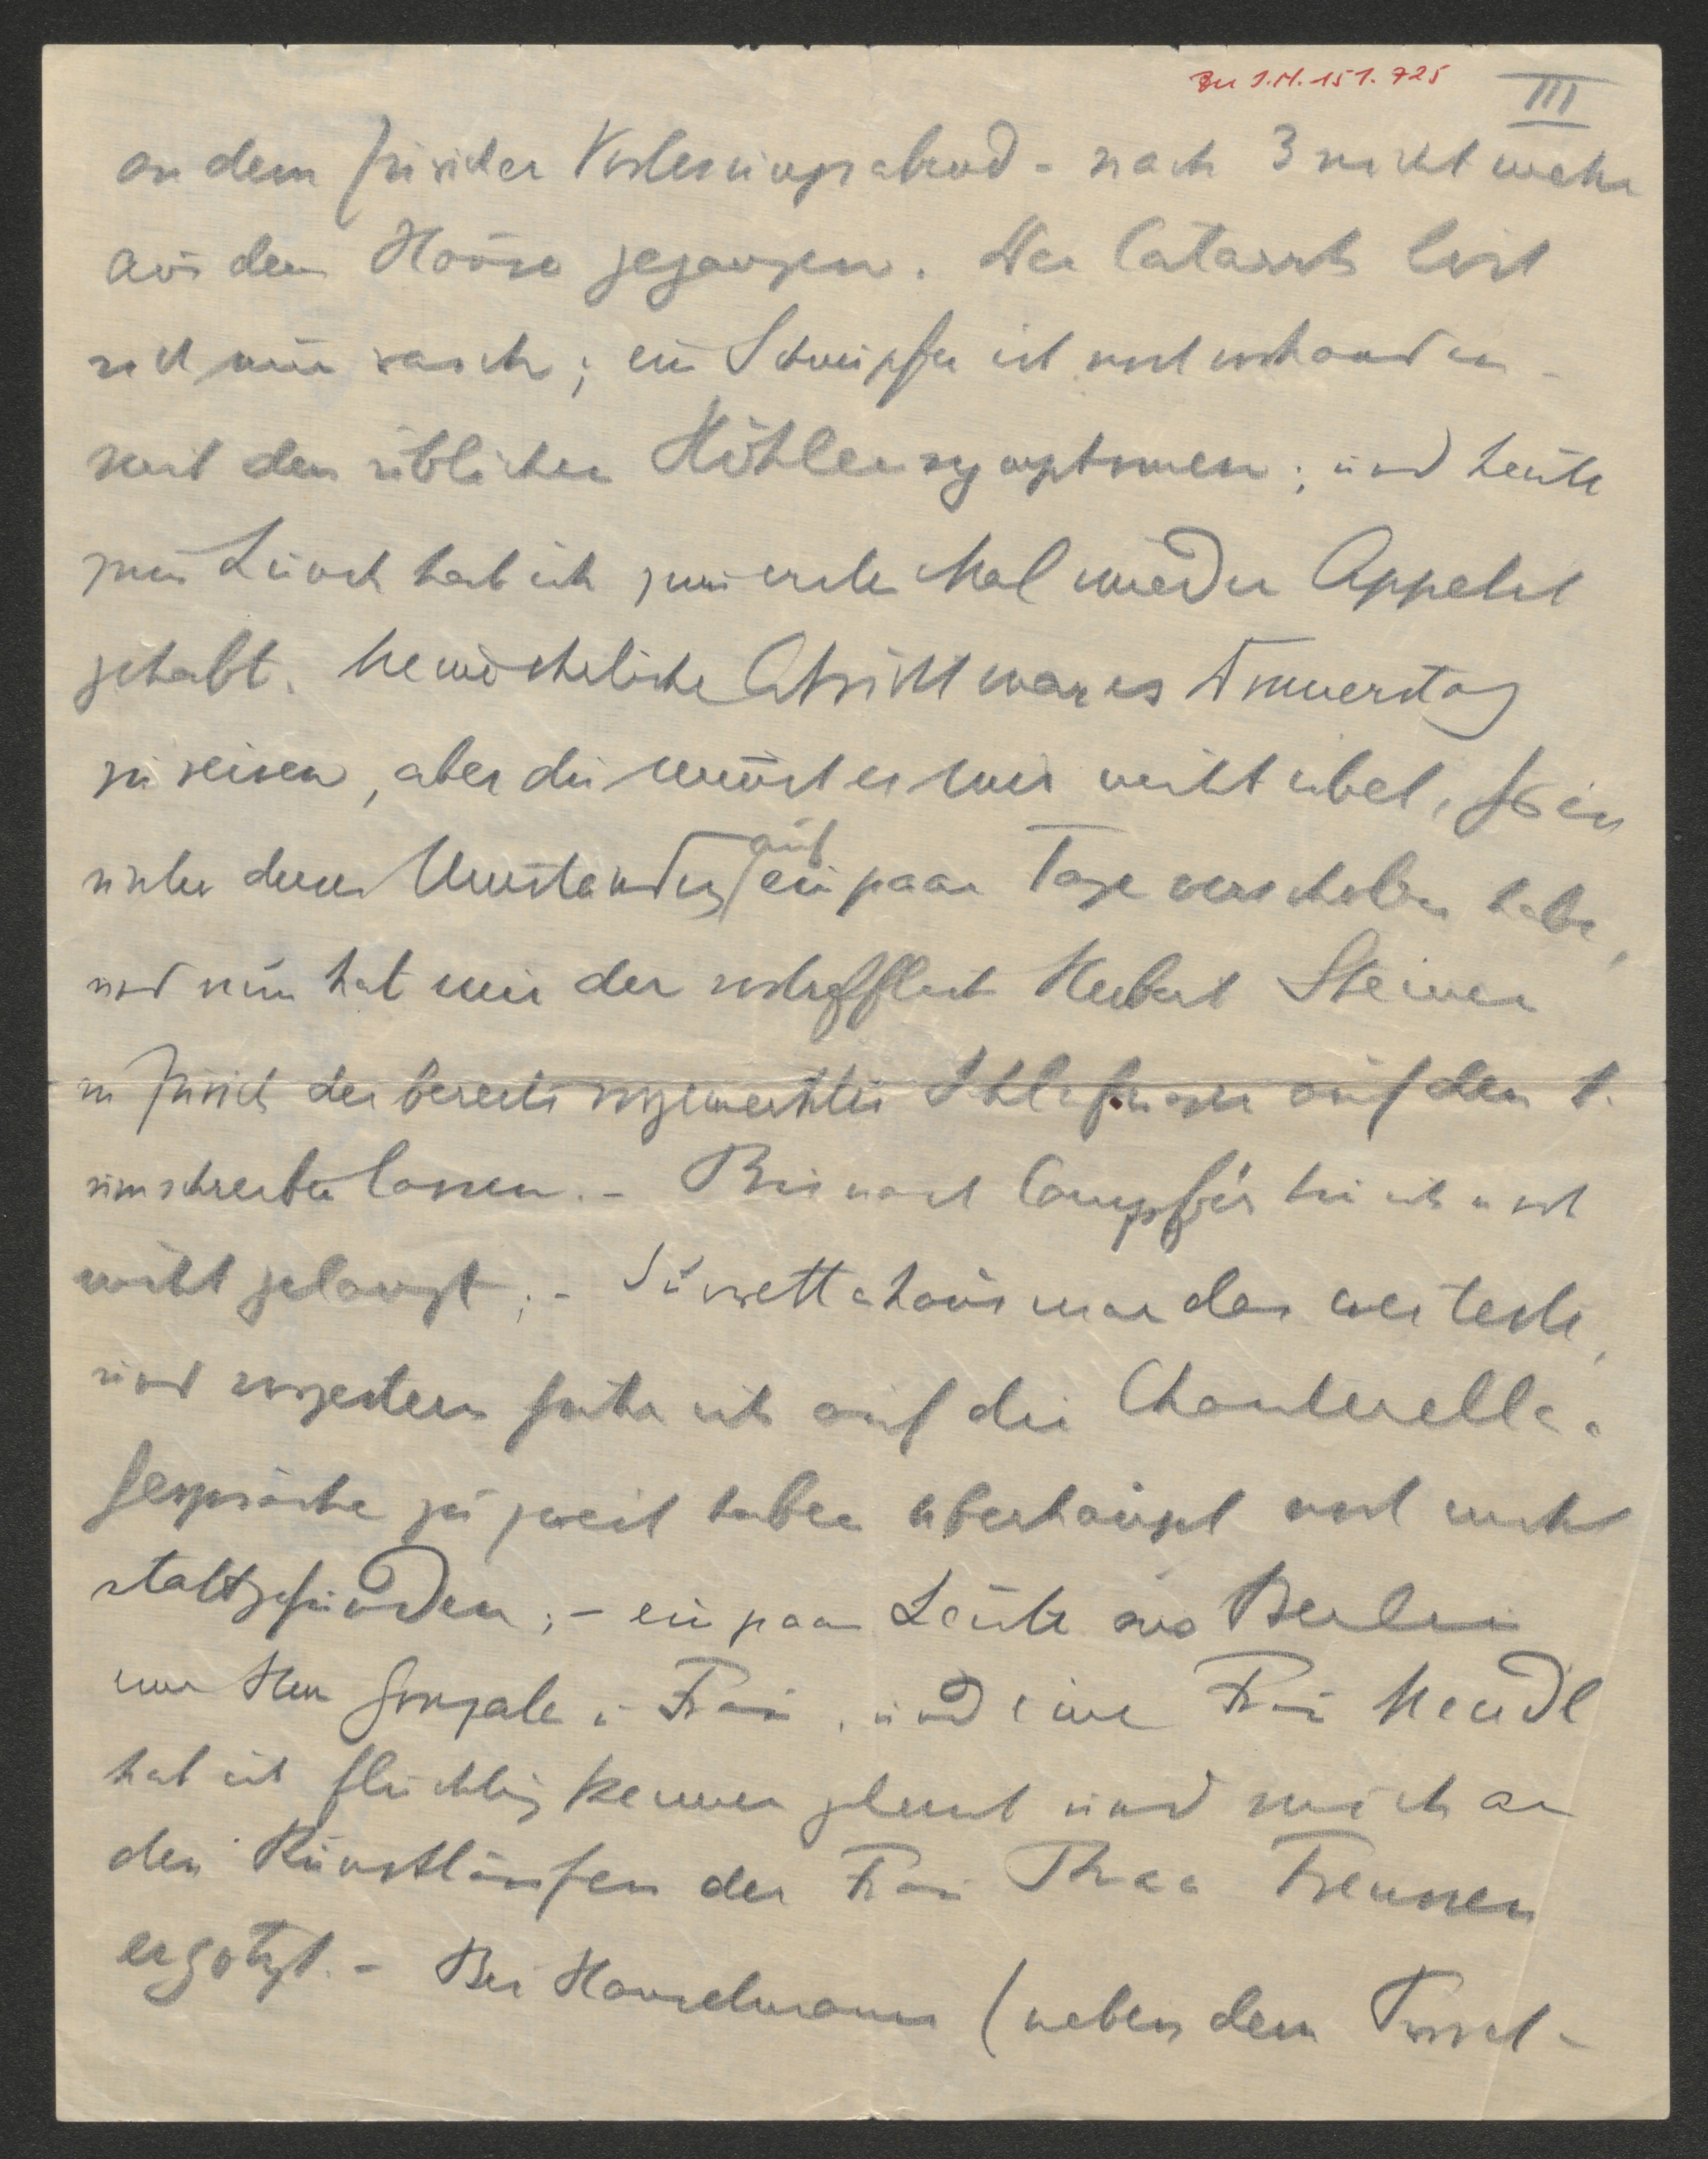 Zu I.N. 151.725
III
an dem Züricher Vorlesungsabend - nach 3 nicht mehr
aus dem Hause gegangen. Der Catarrh löst
sich nun rasch; ein Schnupfen ist noch vorhanden -
mit den üblichen Höhlensymptomen; und heute
zum Lunch hab ich zum ersten Mal wieder Appetit
gehabt. Meine ursprüngliche Absicht war es Donnerstag
zu reisen, aber du nimmst es mir nicht übel, daß ich
unter diesen Umständen auf ein paar Tage verschoben habe,
und nun hat mir der vortreffliche Herbert Steiner
in Zürich die bereits vorgemerkten Schlafwagen auf den 1.
umschreiben lassen. - Bis nach Campfèr bin ich noch
nicht gelangt; - Suvrettahaus war das weiteste,
und vorgestern fuhr ich auf die Chantarella.
Gespräche zu zweit haben überhaupt noch nicht
stattgefunden; - ein paar Leute aus Berlin
Herr u. Frau, und eine Frau Mendl
hab ich flüchtig kennen gelernt und mich an
den Kunstläufen der Frau Thea Frenssen
ergötzt. - Bei Hanselmann (neben dem Postel-